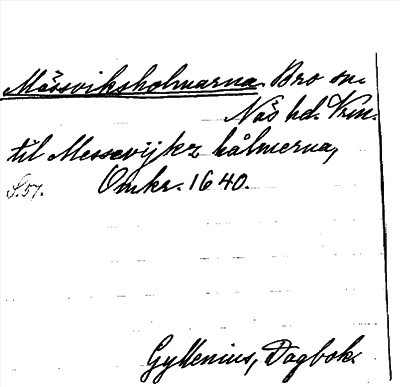 Mässviksholmarna Bro sn.
Näs hd. Vrm.
til Messevijkz hålmerna,
S. 57. Omkr. 1640.
Gyllenius, Dagbok.